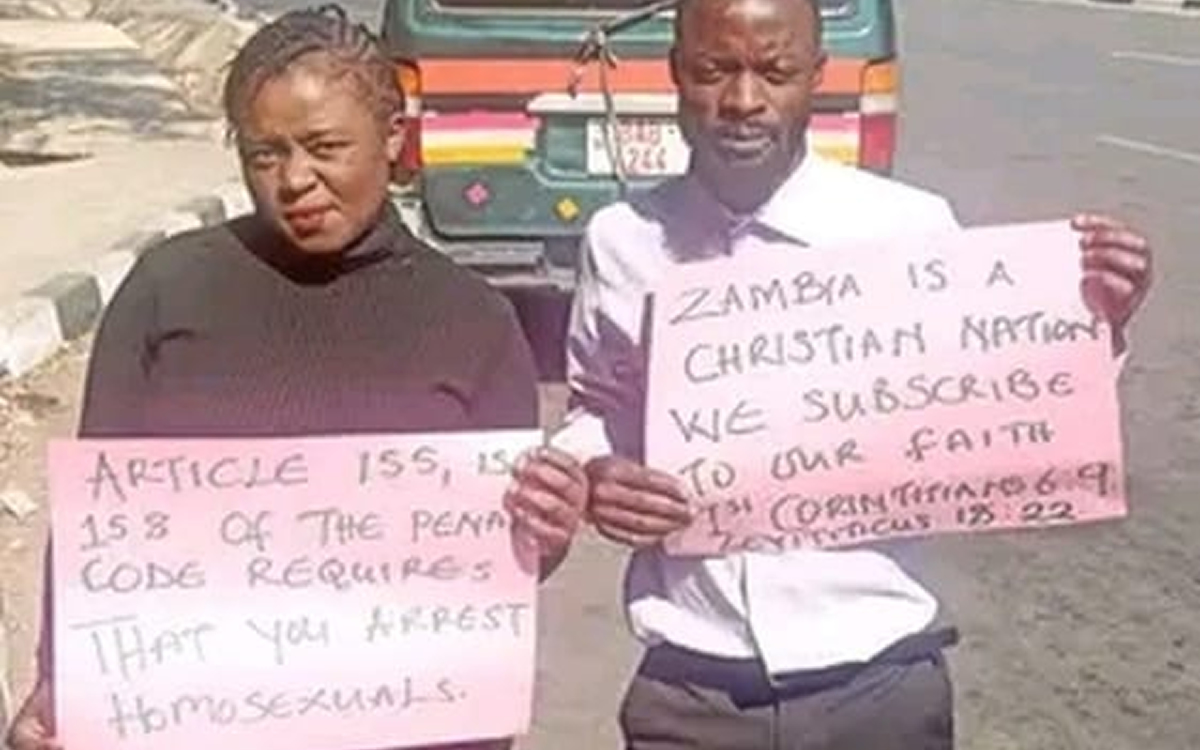 ARTICLE 155,
158 OF THE PENA
CODE REQUIRES
THAT YOU ARREST
HOMOSEXUALS.
ZAMBIA IS A
CHRISTIAN NATION
WE SUBSCRIBE
TO OUR FAITH
1ST CORINTHIANS 6:9
LEVITICUS 18:22